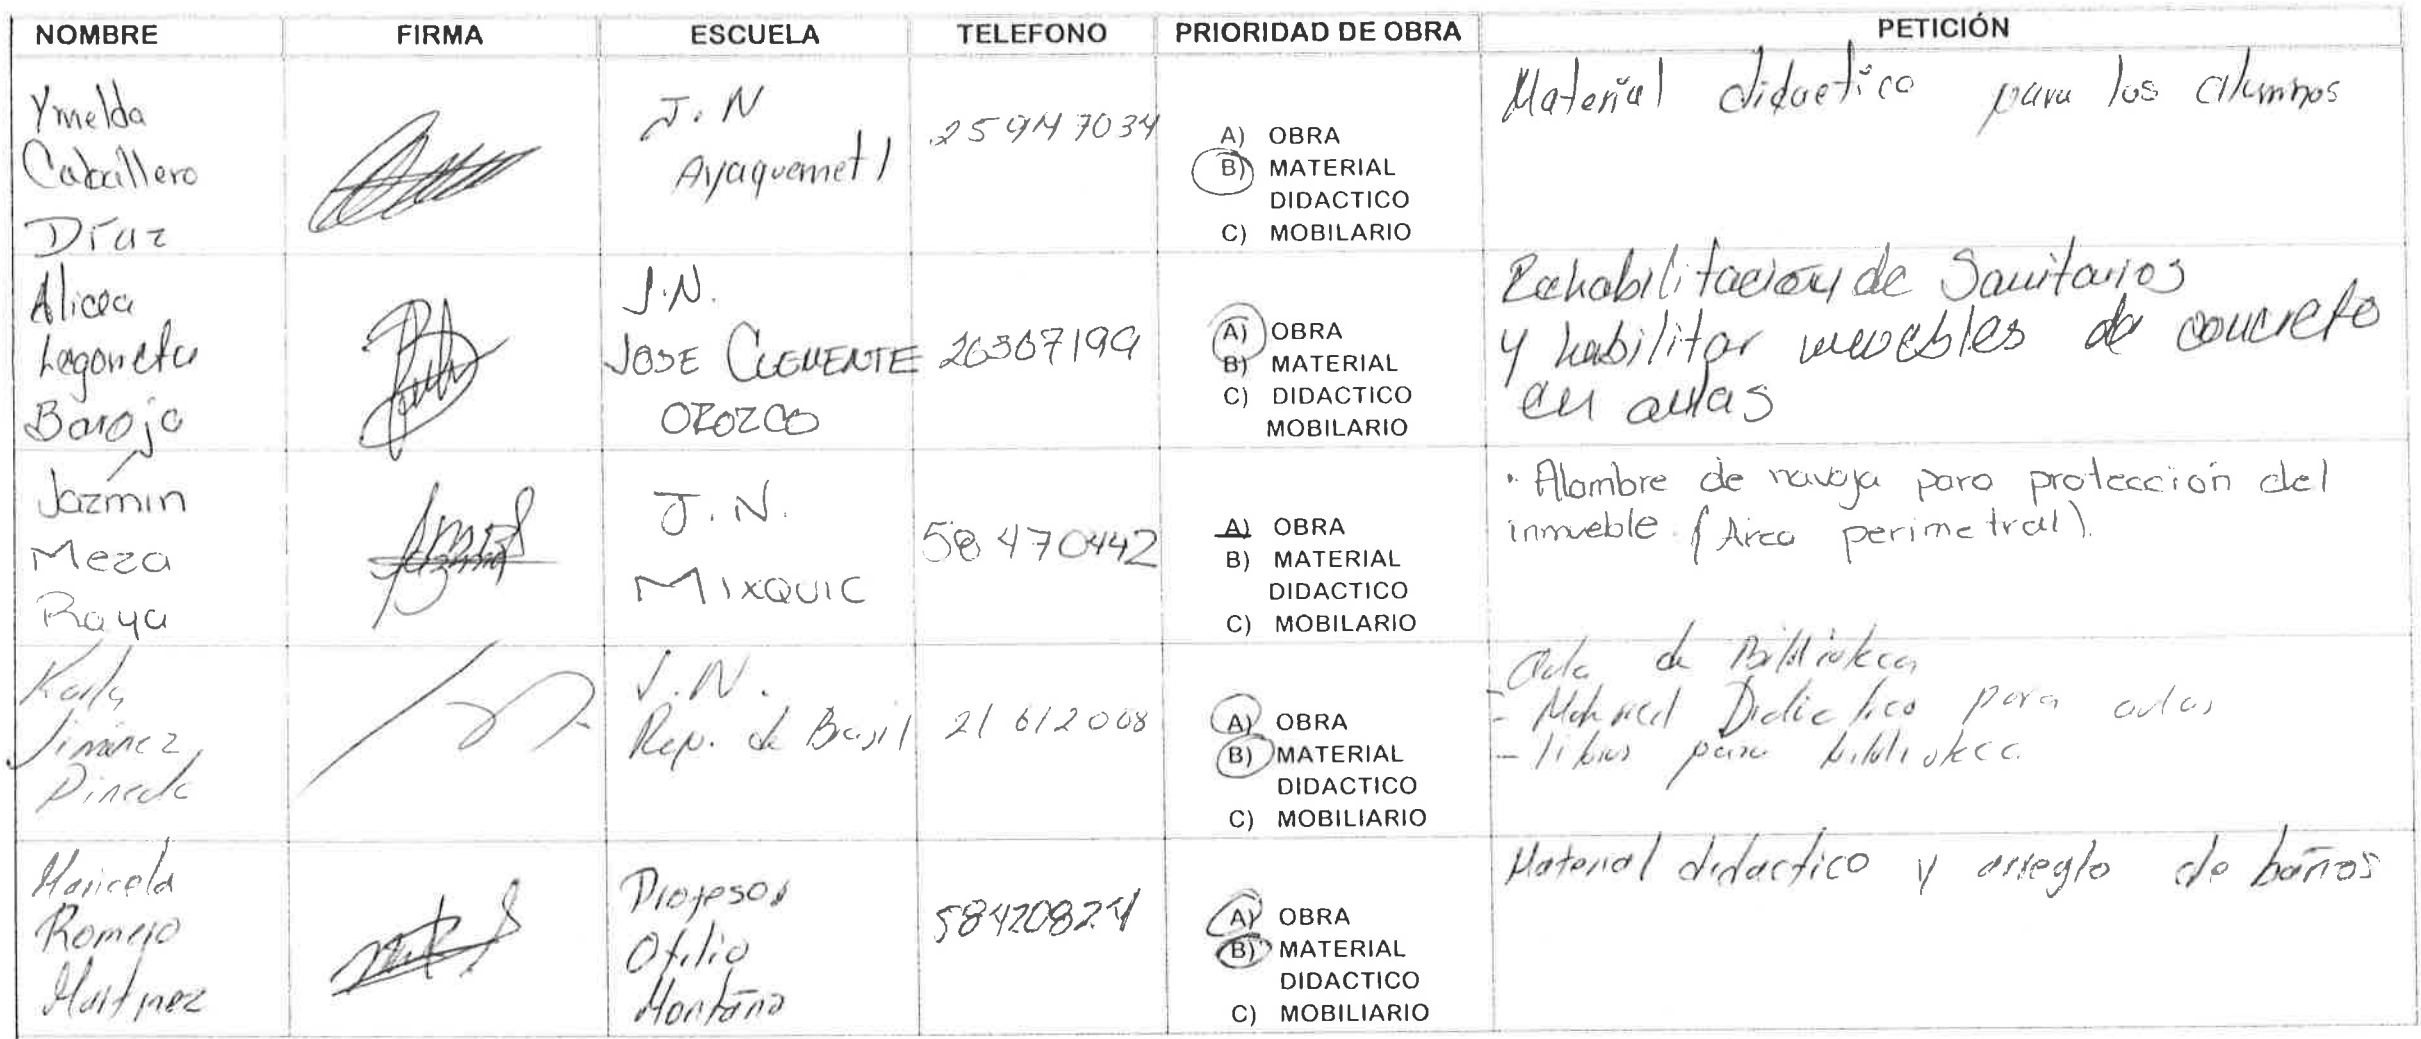 NOMBRE FIRMA ESCUELA TELEFONO PRIORIDAD DE OBRA PETICIÓN
Ymelda
Caballero
Díaz
J.N
Ayaquemetl
25947034
A) OBRA
B) MATERIAL
DIDACTICO
C) MOBILARIO
Material didactico para los alumnos
Alicia
Legorreta
Baroja
J.N.
JOSE CLEMENTE
OROZCO
A) OBRA
B) MATERIAL
C) DIDACTICO
MOBILARIO
Rehabilitación de Sanitarios
y habilitar muebles de concreto
en aulas
Jazmín
Meza
Raya
J.N.
MIXQUIC
58470442
A) OBRA
B) MATERIAL
DIDACTICO
C) MOBILARIO
· Alambre de navaja para protección del
inmueble. (Area perimetral).
Karla
Jiménez
Pineda
J.N.
Rep. de Brasil
21612008
A) OBRA
B) MATERIAL
DIDACTICO
C) MOBILIARIO
- Aula de Biblioteca
- Material Didactico para aulas
- libros para biblioteca
Maricela
Romero
Martinez
Profesor
Otilio
Montaño
58420824
A) OBRA
B) MATERIAL
DIDACTICO
C) MOBILIARIO
Material didactico y arreglo de baños